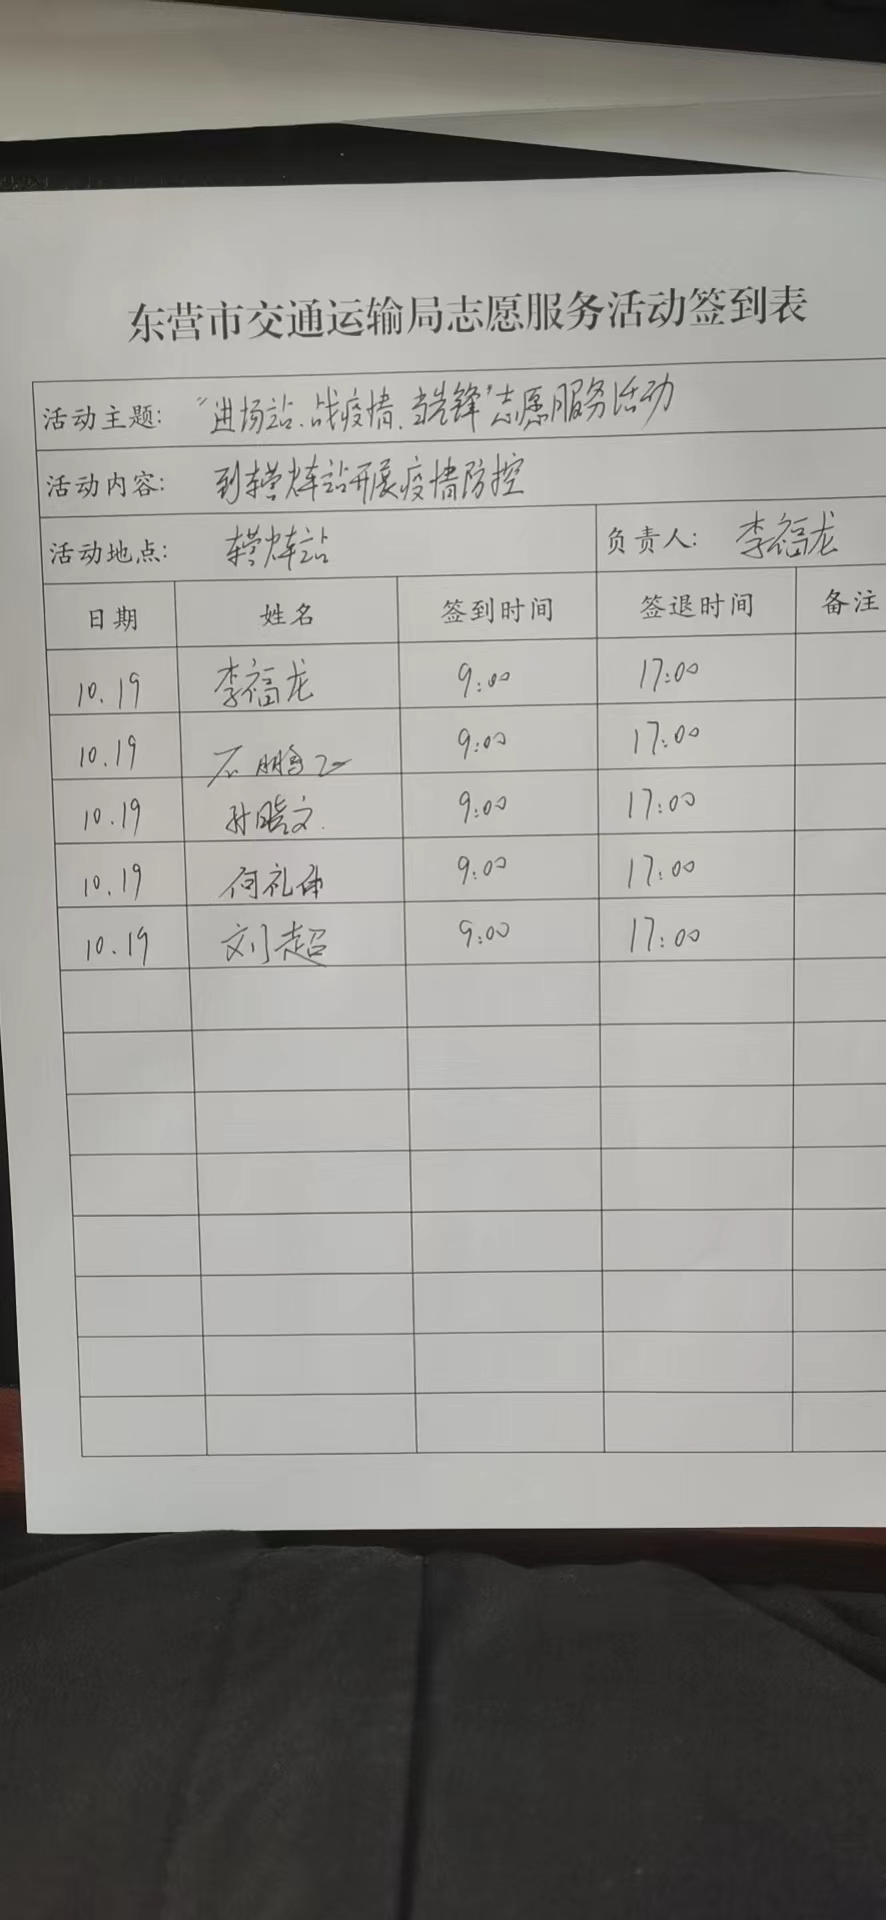 东营市交通运输局志愿服务活动签到表
活动主题: "进场站、战疫情、当先锋"志愿服务活动
活动内容: 到东营火车站开展疫情防控
活动地点: 东营火车站 负责人: 李福龙
日期 姓名 签到时间 签退时间 备注
10.19 李福龙 9:00 17:00
10.19 石鹏 9:00 17:00
10.19 孙晓文 9:00 17:00
10.19 何礼 9:00 17:00
10.19 刘超 9:00 17:00